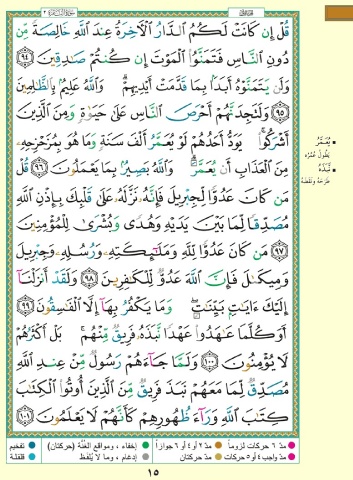 سُورَةُ البَقَرَةِ ٢
قُلْ إِن كَانَتْ لَكُمُ الدَّارُ الْآخِرَةُ عِندَ اللَّهِ خَالِصَةً مِّن
دُونِ النَّاسِ فَتَمَنَّوُا الْمَوْتَ إِن كُنتُمْ صَادِقِينَ ٩٤
وَلَن يَتَمَنَّوْهُ أَبَدًا بِمَا قَدَّمَتْ أَيْدِيهِمْ وَاللَّهُ عَلِيمٌ بِالظَّالِمِينَ
٩٥ وَلَتَجِدَنَّهُمْ أَحْرَصَ النَّاسِ عَلَىٰ حَيَاةٍ وَمِنَ الَّذِينَ
أَشْرَكُوا يَوَدُّ أَحَدُهُمْ لَوْ يُعَمَّرُ أَلْفَ سَنَةٍ وَمَا هُوَ بِمُزَحْزِحِهِ
مِنَ الْعَذَابِ أَن يُعَمَّرَ وَاللَّهُ بَصِيرٌ بِمَا يَعْمَلُونَ ٩٦ قُلْ
مَن كَانَ عَدُوًّا لِّجِبْرِيلَ فَإِنَّهُ نَزَّلَهُ عَلَىٰ قَلْبِكَ بِإِذْنِ اللَّهِ
مُصَدِّقًا لِّمَا بَيْنَ يَدَيْهِ وَهُدًى وَبُشْرَىٰ لِلْمُؤْمِنِينَ
٩٧ مَن كَانَ عَدُوًّا لِّلَّهِ وَمَلَائِكَتِهِ وَرُسُلِهِ وَجِبْرِيلَ
وَمِيكَالَ فَإِنَّ اللَّهَ عَدُوٌّ لِّلْكَافِرِينَ ٩٨ وَلَقَدْ أَنزَلْنَا
إِلَيْكَ آيَاتٍ بَيِّنَاتٍ وَمَا يَكْفُرُ بِهَا إِلَّا الْفَاسِقُونَ ٩٩
أَوَكُلَّمَا عَاهَدُوا عَهْدًا نَّبَذَهُ فَرِيقٌ مِّنْهُم بَلْ أَكْثَرُهُمْ
لَا يُؤْمِنُونَ ١٠٠ وَلَمَّا جَاءَهُمْ رَسُولٌ مِّنْ عِندِ اللَّهِ
مُصَدِّقٌ لِّمَا مَعَهُمْ نَبَذَ فَرِيقٌ مِّنَ الَّذِينَ أُوتُوا الْكِتَابَ
كِتَابَ اللَّهِ وَرَاءَ ظُهُورِهِمْ كَأَنَّهُمْ لَا يَعْلَمُونَ ١٠١
يُعَمَّرُ
يَطُولُ عُمُرُهُ
نَبَذَهُ
طَرَحَهُ وَنَقَضَهُ
مدّ ٦ حركات لزوماً
مدّ ٢ أو ٤ أو ٦ جوازاً
إخفاء، ومواقع الغُنَّة (حركتان)
تفخيم
مدّ واجب ٤ أو ٥ حركات
مدّ حركتان
إدغام، وما لا يُلفَظ
قلقلة
١٥